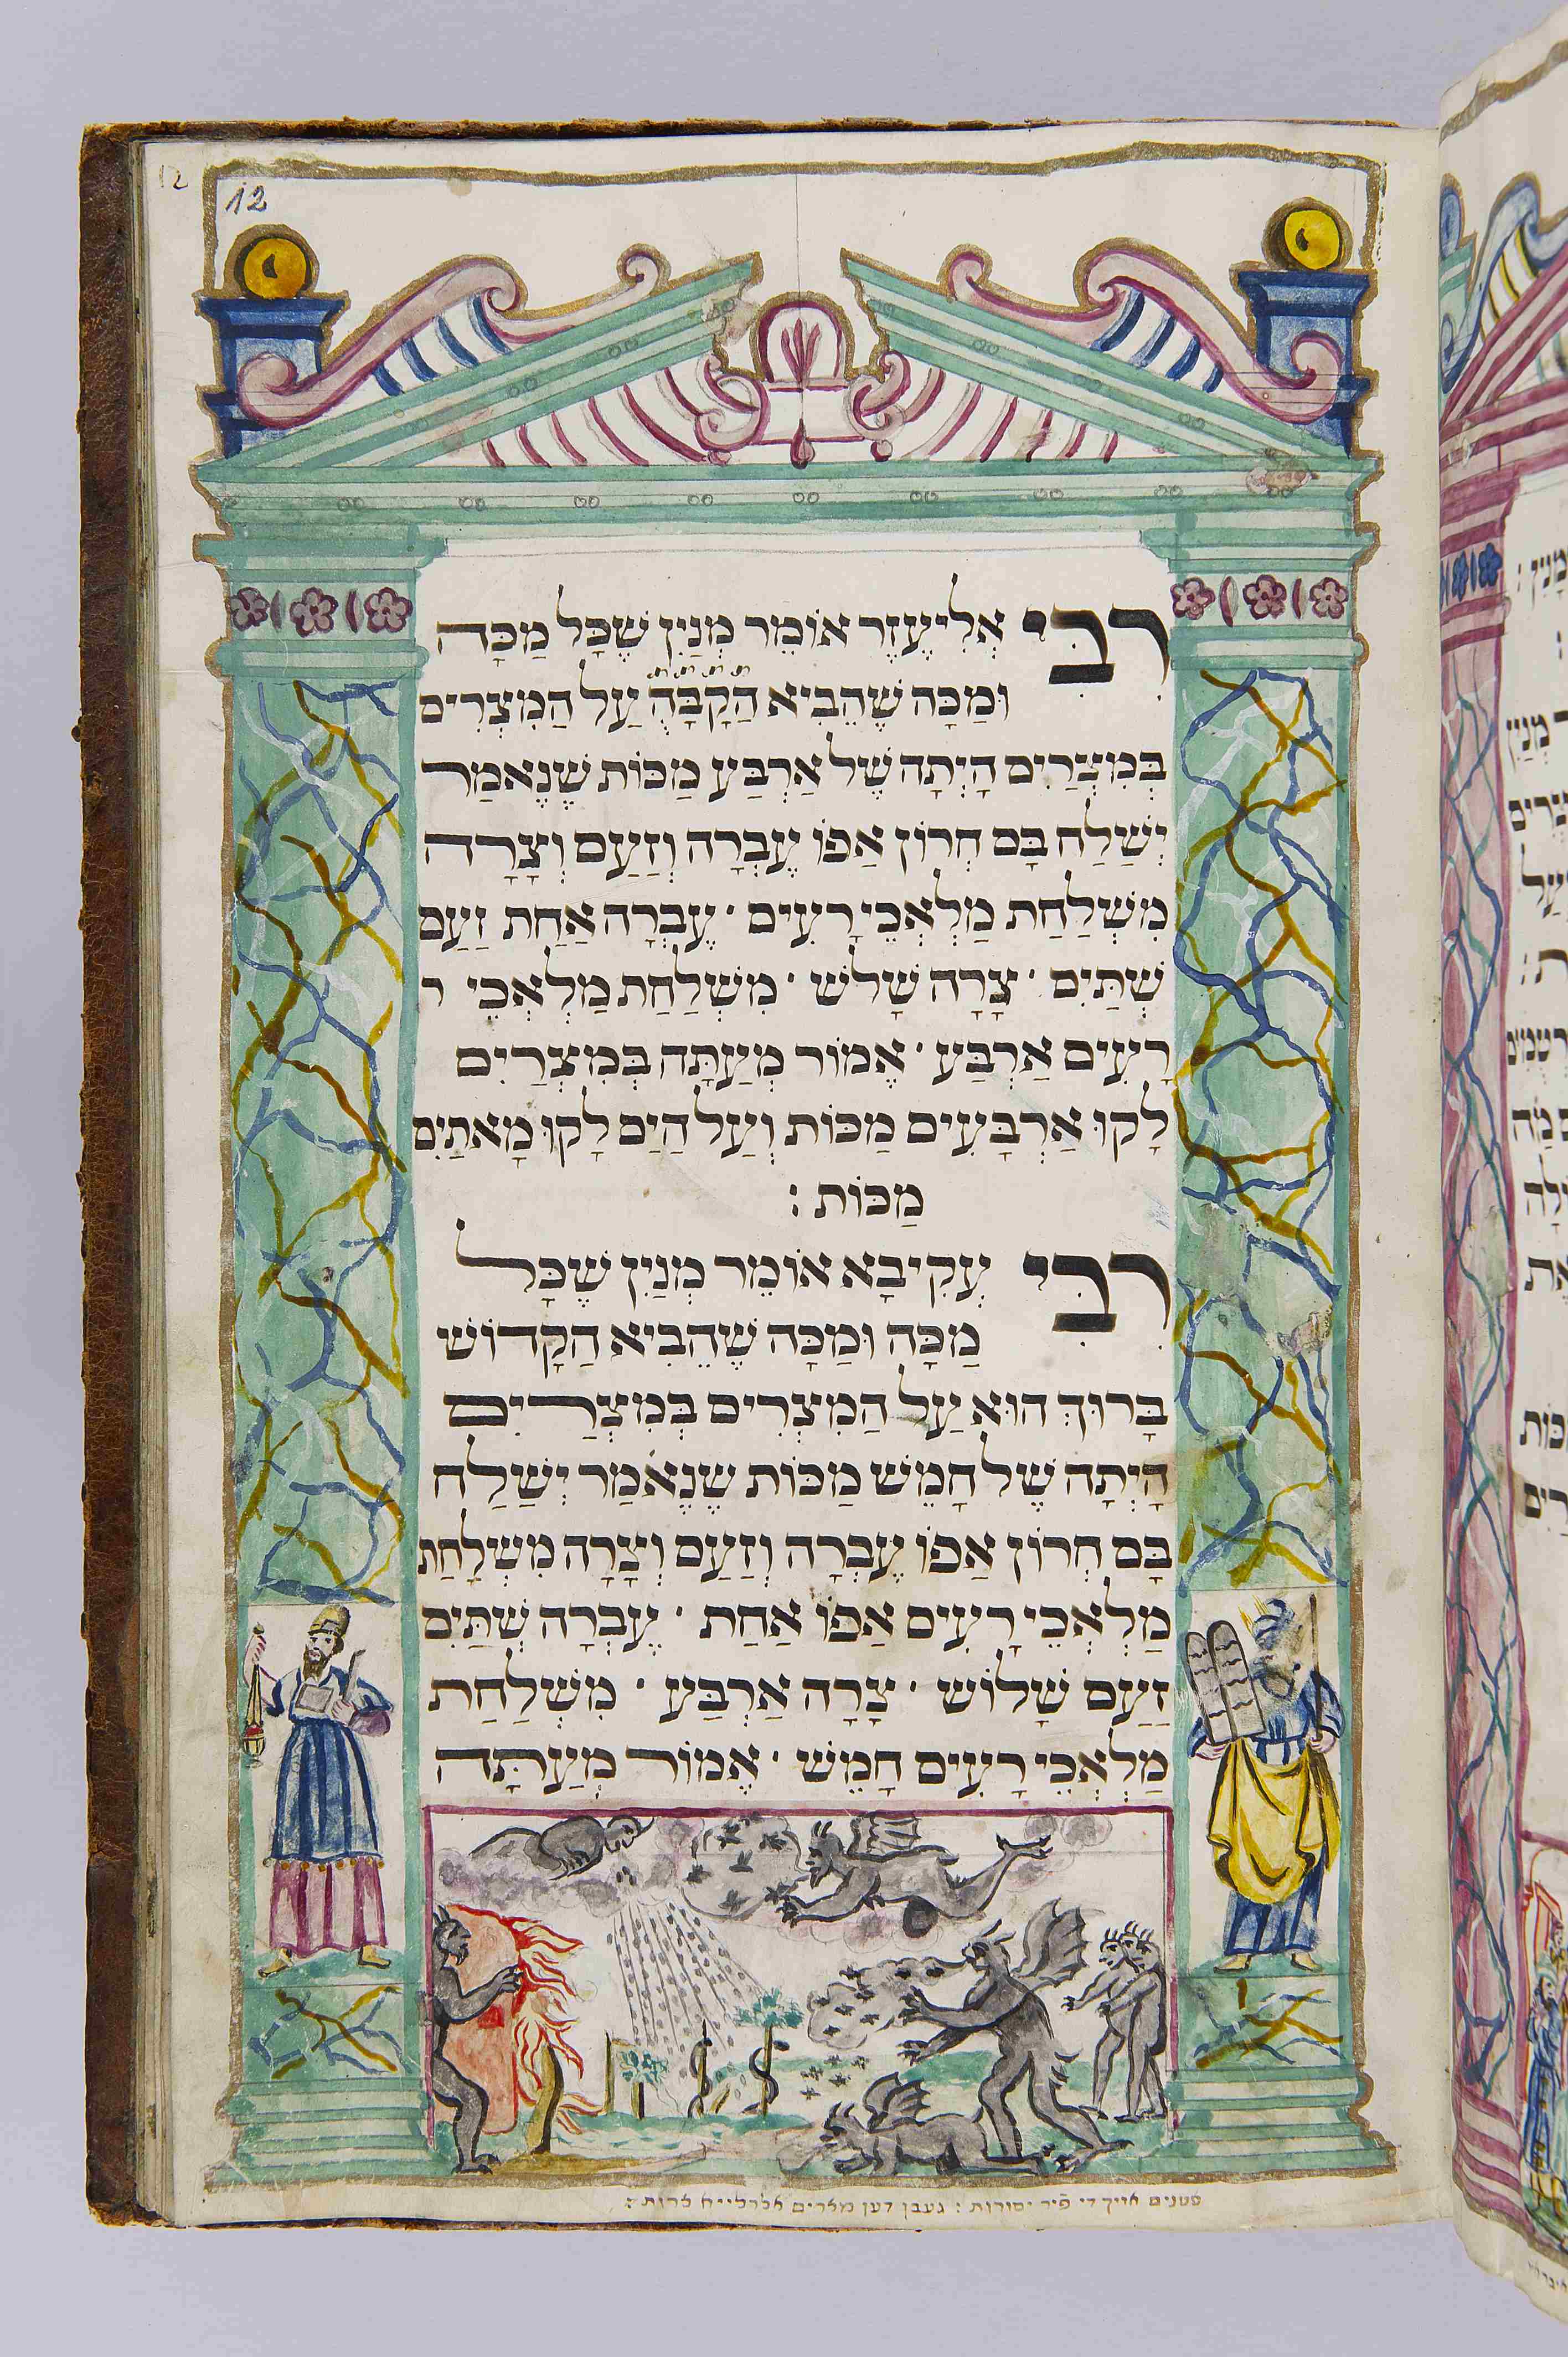 12
12
רַבִּי אֱלִיעֶזֶר אוֹמֵר מְנַיִן שֶׁכָּל מַכָּה
וּמַכָּה שֶׁהֵבִיא הַקָבָּהֶ עַל הַמִצְרִים
בְּמִצְרַיִם הָיְתָה שֶׁל אַרְבַּע מַכּוֹת שֶׁנֶאֱמַר
יְשַׁלַח בָּם חֲרוֹן אַפּוֹ עֶבְרָה וָזַעַם וְצָרָה
מִשְׁלַחַת מַלְאֲכֵי רָעִים · עֶבְרָה אַחַת זַעַם
שְׁתַּיִם · צָרָה שָׁלֹשׁ · מִשְׁלַחַת מַלְאֲכֵי ר
רָעִים אַרְבַּע · אֱמוֹר מֵעַתָּה בְּמִצְרַיִם
לָקוּ אַרְבָּעִים מַכּוֹת וְעַל הַיָם לָקוּ מָאתַיִם
מַכּוֹת :
רַבִּי עֲקִיבָא אוֹמֵר מְנַיִן שֶׁכָּל
מַכָּה וּמַכָּה שֶׁהֵבִיא הַקָדוֹשׁ
בָּרוּךְ הוּא עַל הַמִצְרִים בְּמִצְרַיִם
הָיְתָה שֶׁל חָמֵשׁ מַכּוֹת שֶׁנֶאֱמַר יְשַׁלַח
בָּם חֲרוֹן אַפּוֹ עֶבְרָה וָזַעַם וְצָרָה מִשְׁלַחַת
מַלְאֲכֵי רָעִים אַפּוֹ אַחַת · עֶבְרָה שְׁתַּיִם
זַעַם שָׁלוֹשׁ · צָרָה אַרְבַּע · מִשְׁלַחַת
מַלְאֲכֵי רָעִים חָמֵשׁ · אֱמוֹר מֵעַתָּה
אויך די פיר יסורות : געבן דען מצרים אלרלייא צרות :